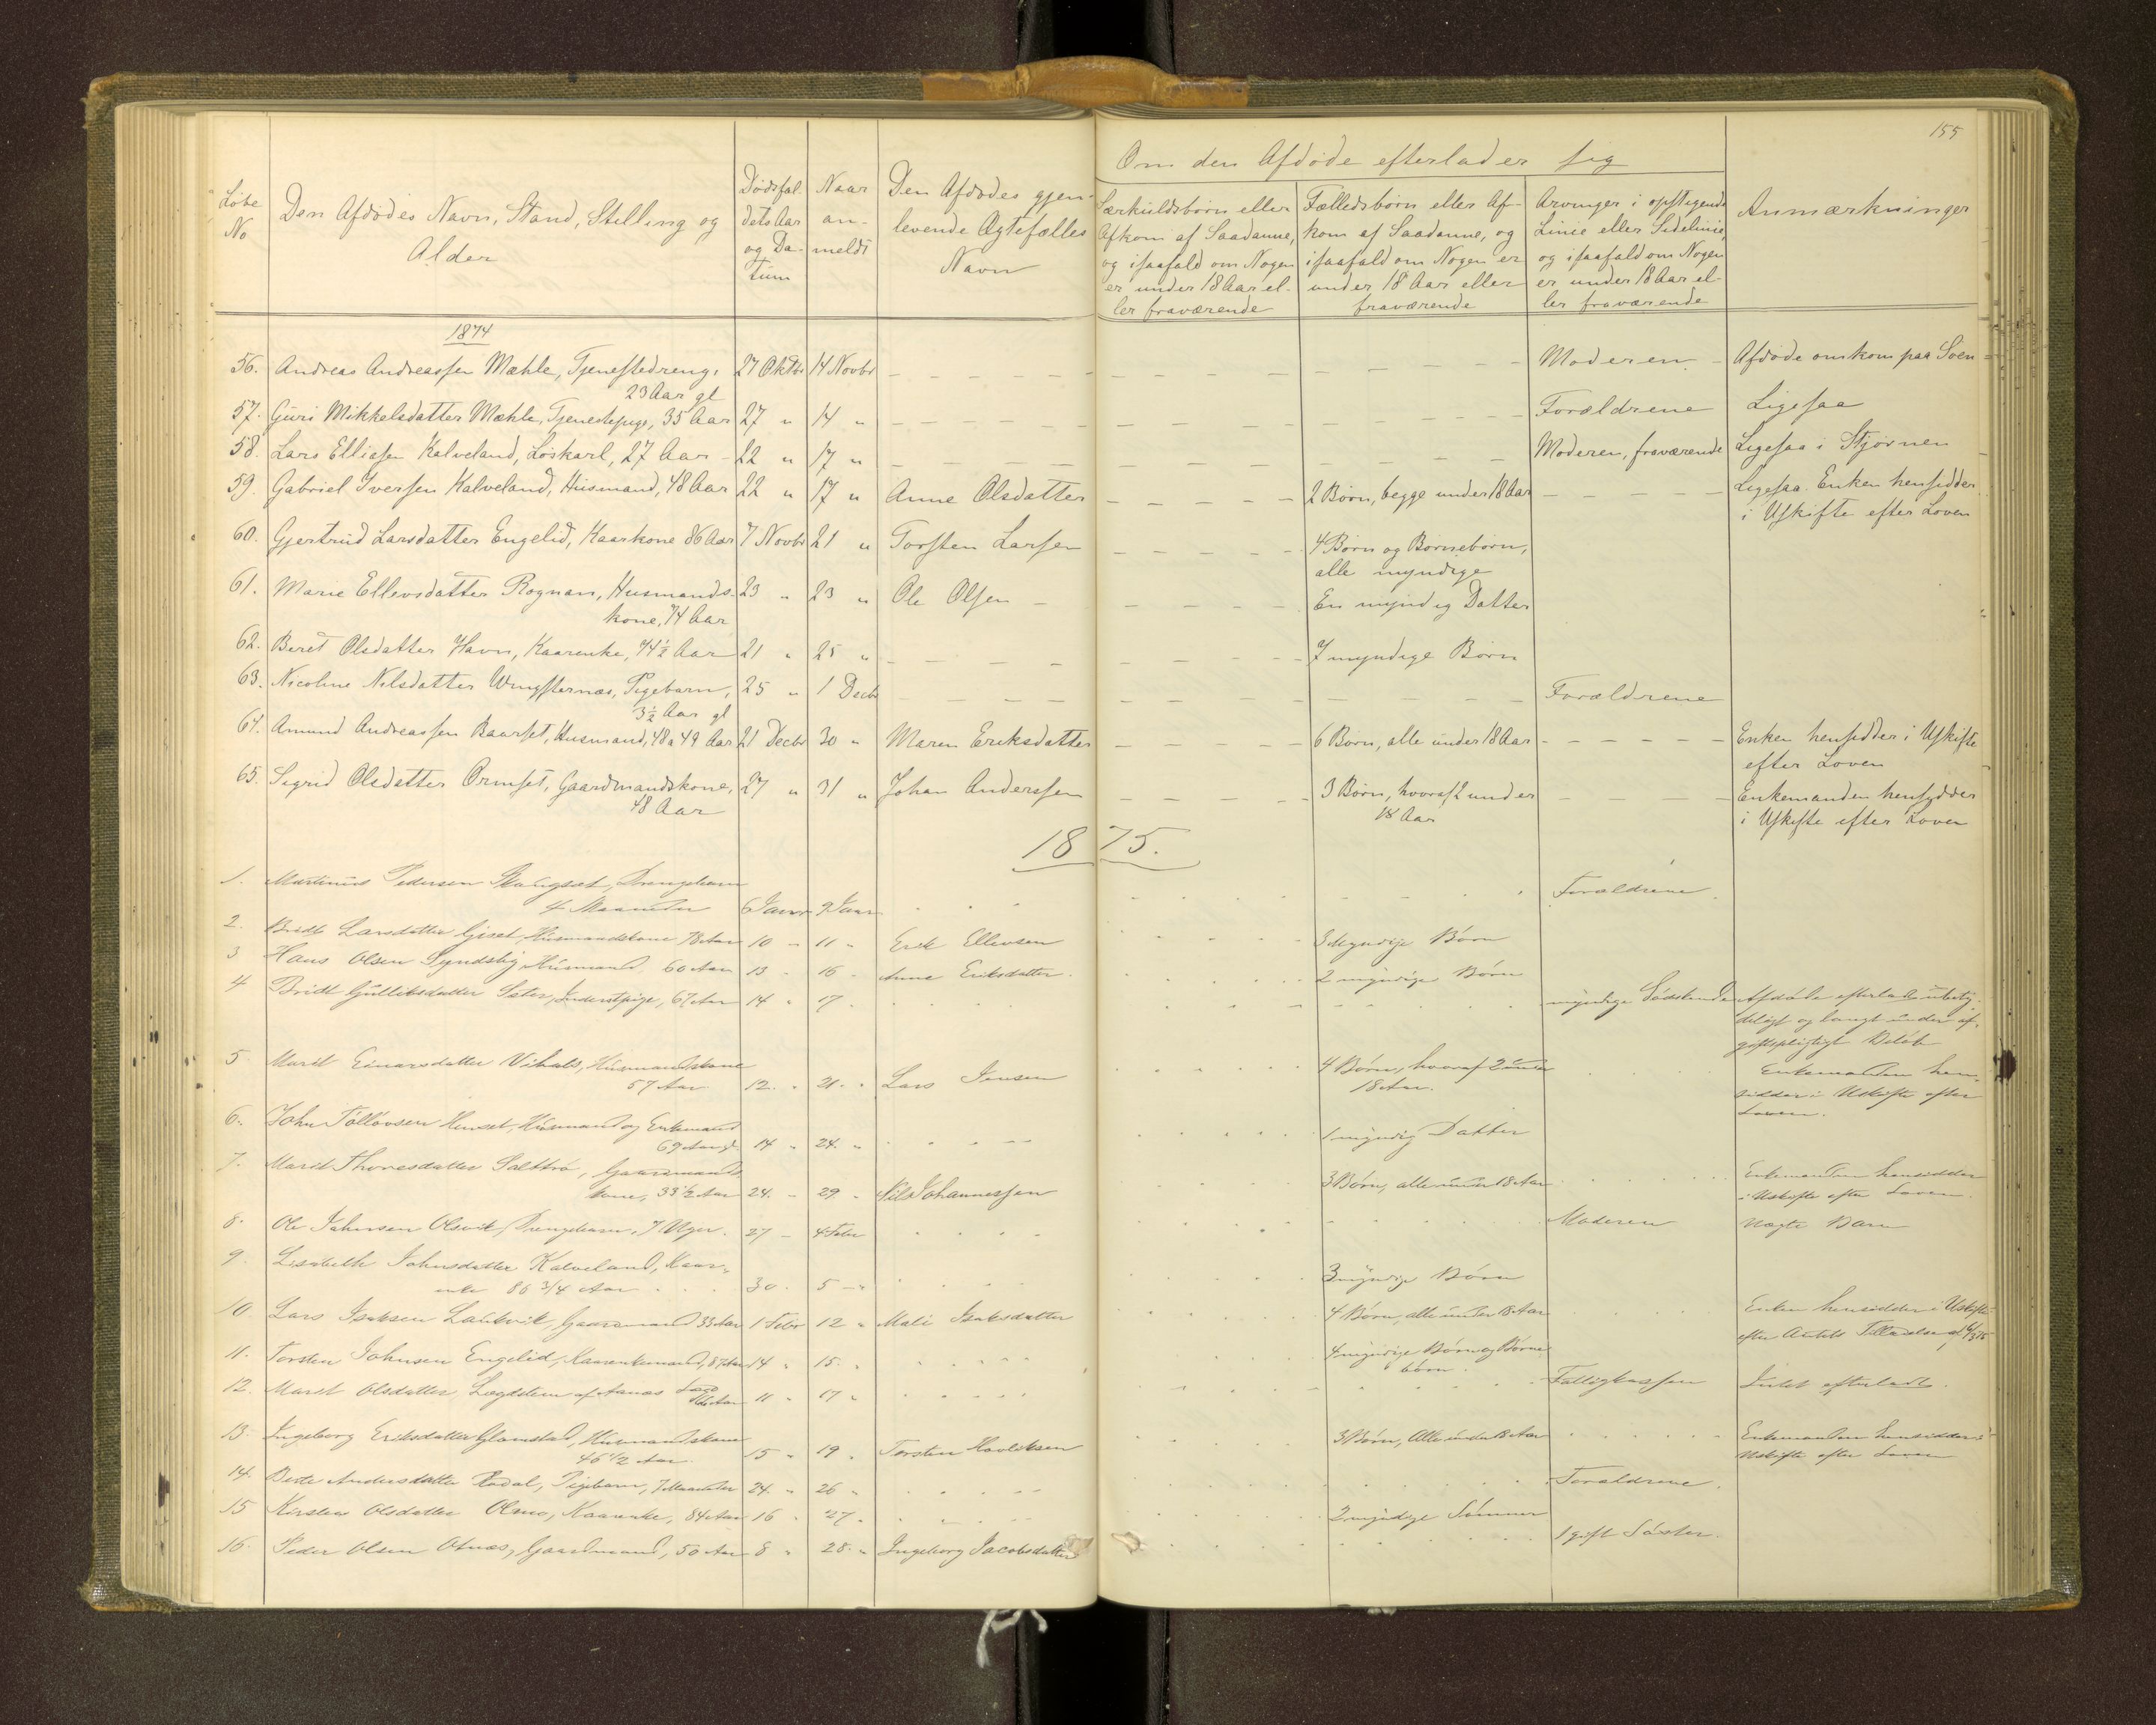 155
Om den Afdøde efterlader sig
Løbe No
Den Afdødes Navn, Stand, Stilling og Alder
Dødsfaldets Aar og Datum
Naar anmeldt
Den Afdødes gjenlevende Ægtefælles Navn
Særkuldsbørn eller Afkom af Saadanne, og isaafald om Nogen er under 18 Aar eller fraværende
Fællesbørn eller Afkom af Saadanne, og isaafald om Nogen er under 18 Aar eller fraværende
Arvinger i opstigende Linie eller Sidelinie, og isaafald om Nogen er under 18 Aar eller fraværende
Anmærkninger
1874
56. Andreas Andreassen Mæhle, Tjenestedreng, 27 Oktbr 14 Novbr Moderen Afdøde omkom paa Søen
23 Aar gl
57. Guri Mikkelsdatter Mæhle, Tjenestepige, 35 Aar 27 " 14 " Forældrene Ligesaa
58. Lars Elliasen Kalveland, Løskarl, 27 Aar 22 " 17 " Moderen, fraværende Ligesaa i Stjørnen
59. Gabriel Iversen Kalveland, Husmand, 48 Aar 22 " 17 " Anne Olsdatter 2 Børn, begge under 18 Aar Ligesaa. Enken hensidder
i Uskifte efter Loven
60. Gjertrud Larsdatter Engelid, Kaarkone 86 Aar 7 Novbr 21 " Torsten Larsen 4 Børn og Børnebørn,
alle myndige
61. Marie Ellevsdatter Rognan, Husmands- 23 " 23 " Ole Olsen En myndig Datter
kone, 74 Aar
62. Beret Olsdatter Havn, Kaarenke, 74½ Aar 21 " 25 " 7 myndige Børn
63. Nicoline Nilsdatter Pigebarn, 25 " 1 Decbr Forældrene
3½ Aar gl
64. Amund Andreassen Baarset, Husmand, 48 a 49 Aar 21 Decbr 30 " Maren Eriksdatter 6 Børn, alle under 18 Aar Enken hensidder i Uskifte
efter Loven
65. Sigrid Olsdatter Ormset, Gaardmandskone, 27 " 31 " Johan Anderssen 3 Børn, hvoraf 2 under Enkemanden hensidder
48 Aar 18 Aar i Uskifte efter Loven
1875.
1. Martinus Pedersen Skaugset, Drengebarn
4 Maaneder 6 Januar 9 Januar Forældrene
2. Bridt Larsdatter Giset, Husmandskone 78 Aar 10 - 11 - Erik Ellevsen 3 Myndige Børn
3 Hans Olsen Husmand 60 Aar 13 - 16 - Anne Eriksdatter 2 myndige Børn
4 Bridt Gulliksdatter Sæter, Inderstpige, 67 Aar 14 " 17 - myndige Sødskende Afdøde efterlod ubety-
deligt og langt under af-
giftspligtigt Beløb
5. Marit Einarsdatter Husmandskone 4 Børn, hvoraf 2 under Enkemanden hen-
57 Aar 12. " 21. " Lars Jensen 18 Aar. sidder i Uskifte efter
Loven.
6. John Husmand og Enkemand
69 Aar gl 14 " 24. " 1 myndig Datter
7. Marit Thoresdatter Gaardmands-
kone, 33½ Aar 24. - 29 - Nils Johannessen 3 Børn, alle under 18 Aar Enkemanden hensidder
i Uskifte efter Loven
8. Ole Johnsen Olsvik, Drengebarn, 7 Uger. 27 - 4 Febr Moderen Uægte Barn
9. Lisabeth Johnsdatter Kalveland, Kaar-
enke 86 3/4 Aar 30. 5 - 3 myndige Børn
10. Lars Isaksen Laukvik, Gaardmand 33 Aar 1 Febr 12 " Mali Isaksdatter 4 Børn, alle under 18 Aar Enken hensidder i Uskifte
efter Amtets Tilladelse af
11. Torsten Johnsen Engelid, Kaarenkemand, 87 Aar 14 " 15. " 4 myndige Børn og Børne-
børn
12. Marit Olsdatter, Lægdslem af Aunæs 11 " 17 " Fattigkassen Intet efterladt.
13. Ingeborg Eriksdatter Glamstad, Husmandskone 3 Børn, Alle under 18 Aar Enkemanden hensidder i
46½ Aar. 15 " 19 " Torsten Uskifte efter Loven
14. Berte Andersdatter Rodal, Pigebarn, 7 Maaneder 24. " 26 " Forældrene.
15 Kirsten Olsdatter Olmo, Kaarenke, 84 Aar 16 " 27. 2 myndige Sønner
16. Peder Olsen Gaardmand, 50 Aar 8 " 28. " Ingeborg Jacobsdatter 1 gift Søster.